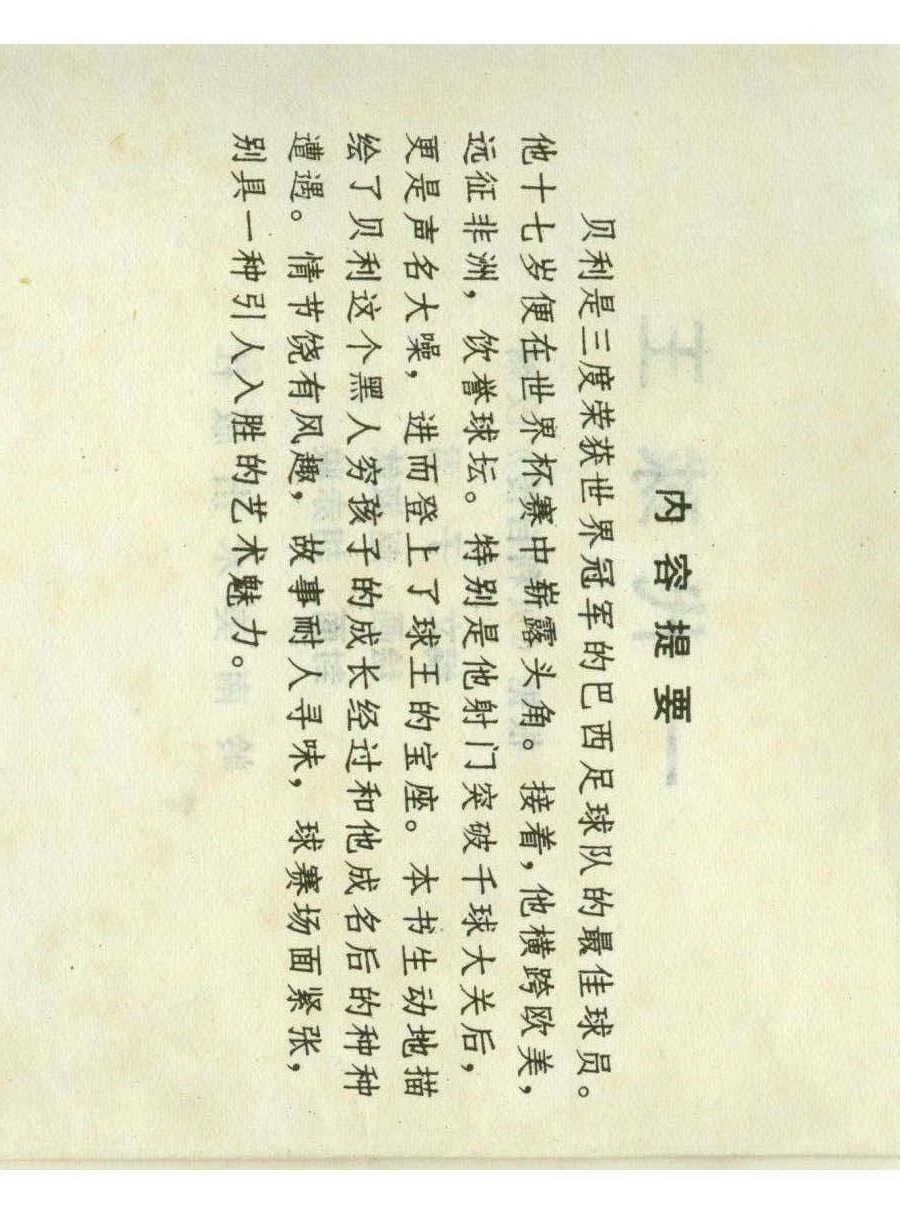 内容提要
贝利是三度荣获世界冠军的巴西足球队的最佳球员。
他十七岁便在世界杯赛中崭露头角。接着，他横跨欧美，
远征非洲，饮誉球坛。特别是他射门突破千球大关后，
更是声名大噪，进而登上了球王的宝座。本书生动地描
绘了贝利这个黑人穷孩子的成长经过和他成名后的种种
遭遇。情节饶有风趣，故事耐人寻味，球赛场面紧张，
别具一种引人入胜的艺术魅力。